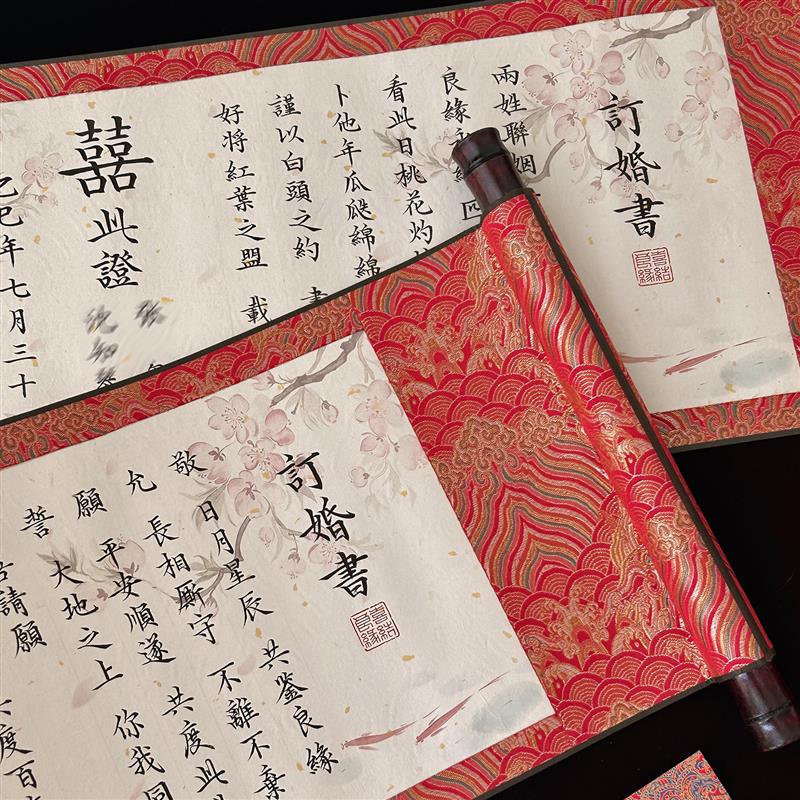 訂婚書
喜結良緣
兩姓聯姻
良緣永結 匹
看此日桃花灼
卜他年瓜瓞綿綿
謹以白頭之約 書
好將紅葉之盟 載
囍此證
乙巳年七月三十
訂婚書
喜結良緣
敬 日月星辰 共鑒良緣
允 長相厮守 不離不棄
願 平安順遂 共度此
誓 大地之上 你我同
請願 度百